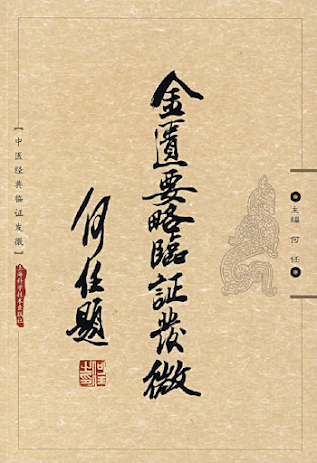 主编 何 任
金匱要略臨証發微
何任題
【中医经典临证发微】
上海科学技术出版社